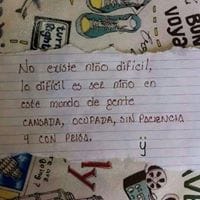 No existe niño difícil,
lo difícil es ser niño en
este mundo de gente
CANSADA, OCUPADA, SIN PACIENCIA
Y CON PRISA.
turn
Right
voya
ly